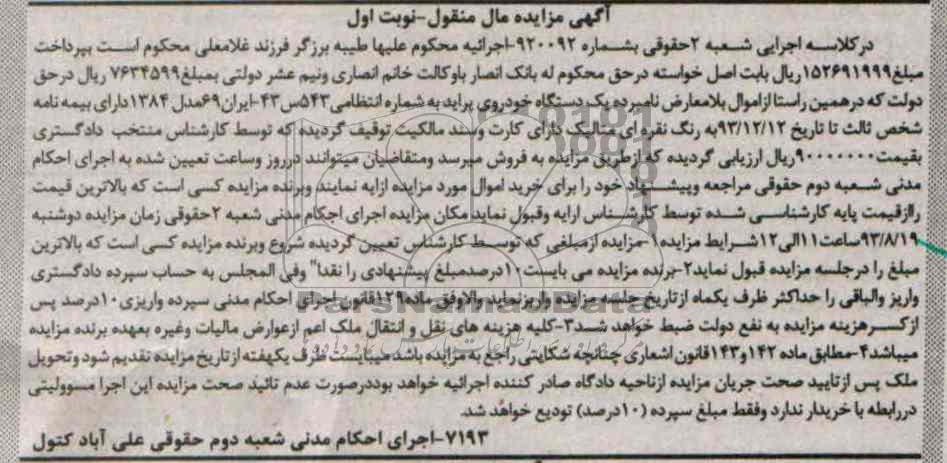 آگهی مزایده مال منقول-نوبت اول
درکلاسه اجرایی شعبه ۲حقوقی بشماره ۹۲۰۰۹۲-اجرائیه محکوم علیها طیبه برزگر فرزند غلامعلی محکوم است بپرداخت
مبلغ۱۵۲۶۹۱۹۹۹ریال بابت اصل خواسته درحق محکوم له بانک انصار باوکالت خانم انصاری ونیم عشر دولتی بمبلغ۷۶۳۴۵۹۹ ریال درحق
دولت که درهمین راستا ازاموال بلامعارض نامبرده یک دستگاه خودروی پراید به شماره انتظامی۵۴۳س۴۳-ایران۶۹مدل ۱۳۸۴دارای بیمه نامه
شخص ثالث تا تاریخ ۹۳/۱۲/۱۲به رنگ نقره ای متالیک دارای کارت وسند مالکیت توقیف گردیده که توسط کارشناس منتخب دادگستری
بقیمت۹۰۰۰۰۰۰۰ریال ارزیابی گردیده که ازطریق مزایده به فروش میرسد ومتقاضیان میتوانند درروز وساعت تعیین شده به اجرای احکام
مدنی شعبه دوم حقوقی مراجعه وپیشنهاد خود را برای خرید اموال مورد مزایده ارایه نمایند وبرنده مزایده کسی است که بالاترین قیمت
راازقیمت پایه کارشناسی شده توسط کارشناس ارایه وقبول نماید مکان مزایده اجرای اجکام مدنی شعبه ۲حقوقی زمان مزایده دوشنبه
۹۳/۸/۱۹ساعت۱۱الی۱۲شرایط مزایده۱-مزایده ازمبلغی که توسط کارشناس تعیین گردیده شروع وبرنده مزایده کسی است که بالاترین
مبلغ را درجلسه مزایده قبول نماید۲-برنده مزایده می بایست۱۰درصدمبلغ پیشنهادی را نقدا" وفی المجلس به حساب سپرده دادگستری
واریز والباقی را حداکثر ظرف یکماه ازتاریخ جلسه مزایده واریزنماید والاوفق ماده۱۲۹قانون اجرای احکام مدنی سپرده واریزی۱۰درصد پس
ازکسرهزینه مزایده به نفع دولت ضبط خواهد شد۳-کلیه هزینه های نقل و انتقال ملک اعم ازعوارض مالیات وغیره بعهده برنده مزایده
میباشد۴-مطابق ماده ۱۴۲و۱۴۳قانون اشعاری چنانچه شکایتی راجع به مزایده باشد میبایست ظرف یکهفته ازتاریخ مزایده تقدیم شود وتحویل
ملک پس ازتایید صحت جریان مزایده ازناحیه دادگاه صادر کننده اجرائیه خواهد بوددرصورت عدم تائید صحت مزایده این اجرا مسوولیتی
دررابطه با خریدار ندارد وفقط مبلغ سپرده (۱۰درصد) تودیع خواهد شد.
۷۱۹۳-اجرای احکام مدنی شعبه دوم حقوقی علی آباد کتول
ParsNamadData